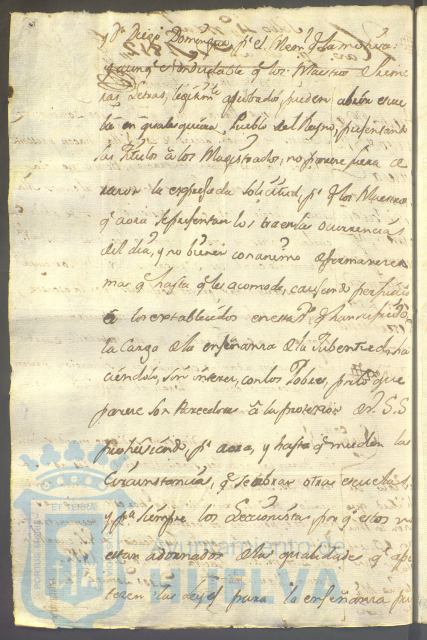 y Dⁿ Diego Domenguez pʳ el Menʳ q̃ la motiva:
y aunq̃ es indudable q̃ los Maestros de primeras
Letras, legitimᵗᵉ aprobados pueden abrir escue
la en qualesquiera Pueblo del Reyno, presentando
los Titulos a los Magistrados, no parece fuera de
razon la expresada solicitud, pʳ q̃ los Maestros
q̃ aora se presentan los trae las ocurrencias
del dia, y no bienen con animo de permanecer
mas q̃ hasta q̃ les acomode, causando perjuicio
a los establecidos en esta Vª q̃ han sufrido
la Carga de la enseñanza de la Jubentud, ha
ciendolo, sin interes, con los Pobres, por lo que
parece son Acrehedores a la proteccion de V. S. S
prohiviendo pʳ aora, y hasta q̃ muden las
Circunstancias, q̃ se abran otras escuelas,
y pª siempre los Leccionistas, por q̃ estos no
estan adornados de las qualidades q̃ ape
tecen las Leyes para la enseñanza pu
Ayuntamiento de
HUELVA